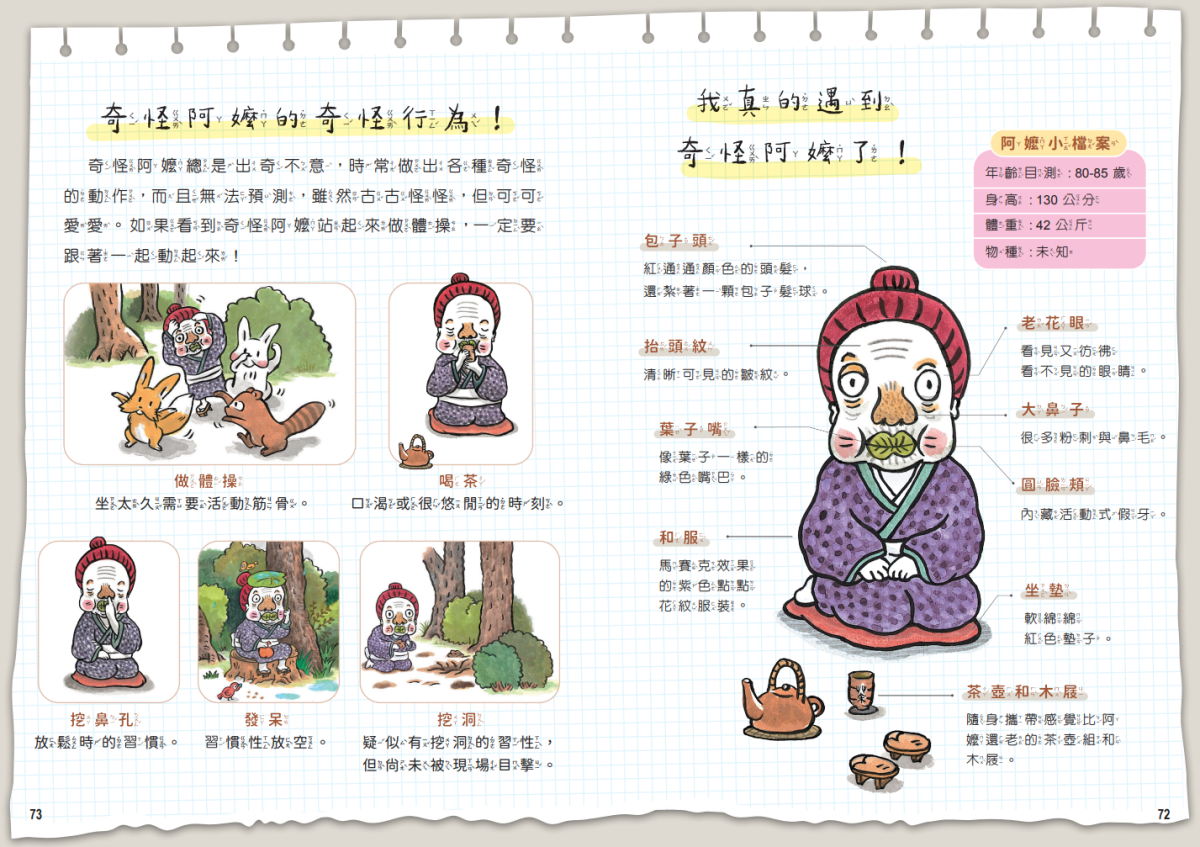 我真的遇到
奇怪阿嬤了！
阿嬤小檔案
年齡目測：80-85 歲
身高：130 公分
體重：42 公斤
物種：未知
包子頭
紅通通顏色的頭髮，
還紮著一顆包子髮球。
抬頭紋
清晰可見的皺紋。
葉子嘴
像葉子一樣的
綠色嘴巴。
和服
馬賽克效果
的紫色點點
花紋服裝。
老花眼
看見又彷彿
看不見的眼睛。
大鼻子
很多粉刺與鼻毛。
圓臉頰
內藏活動式假牙。
坐墊
軟綿綿
紅色墊子。
茶壺和木屐
隨身攜帶感覺比阿
嬤還老的茶壺組和
木屐。
72
奇怪阿嬤的奇怪行為！
奇怪阿嬤總是出奇不意，時常做出各種奇怪
的動作，而且無法預測，雖然古古怪怪，但可可
愛愛。如果看到奇怪阿嬤站起來做體操，一定要
跟著一起動起來！
做體操
坐太久需要活動筋骨。
喝茶
口渴或很悠閒的時刻。
挖鼻孔
放鬆時的習慣。
發呆
習慣性放空。
挖洞
疑似有挖洞的習性，
但尚未被現場目擊。
73